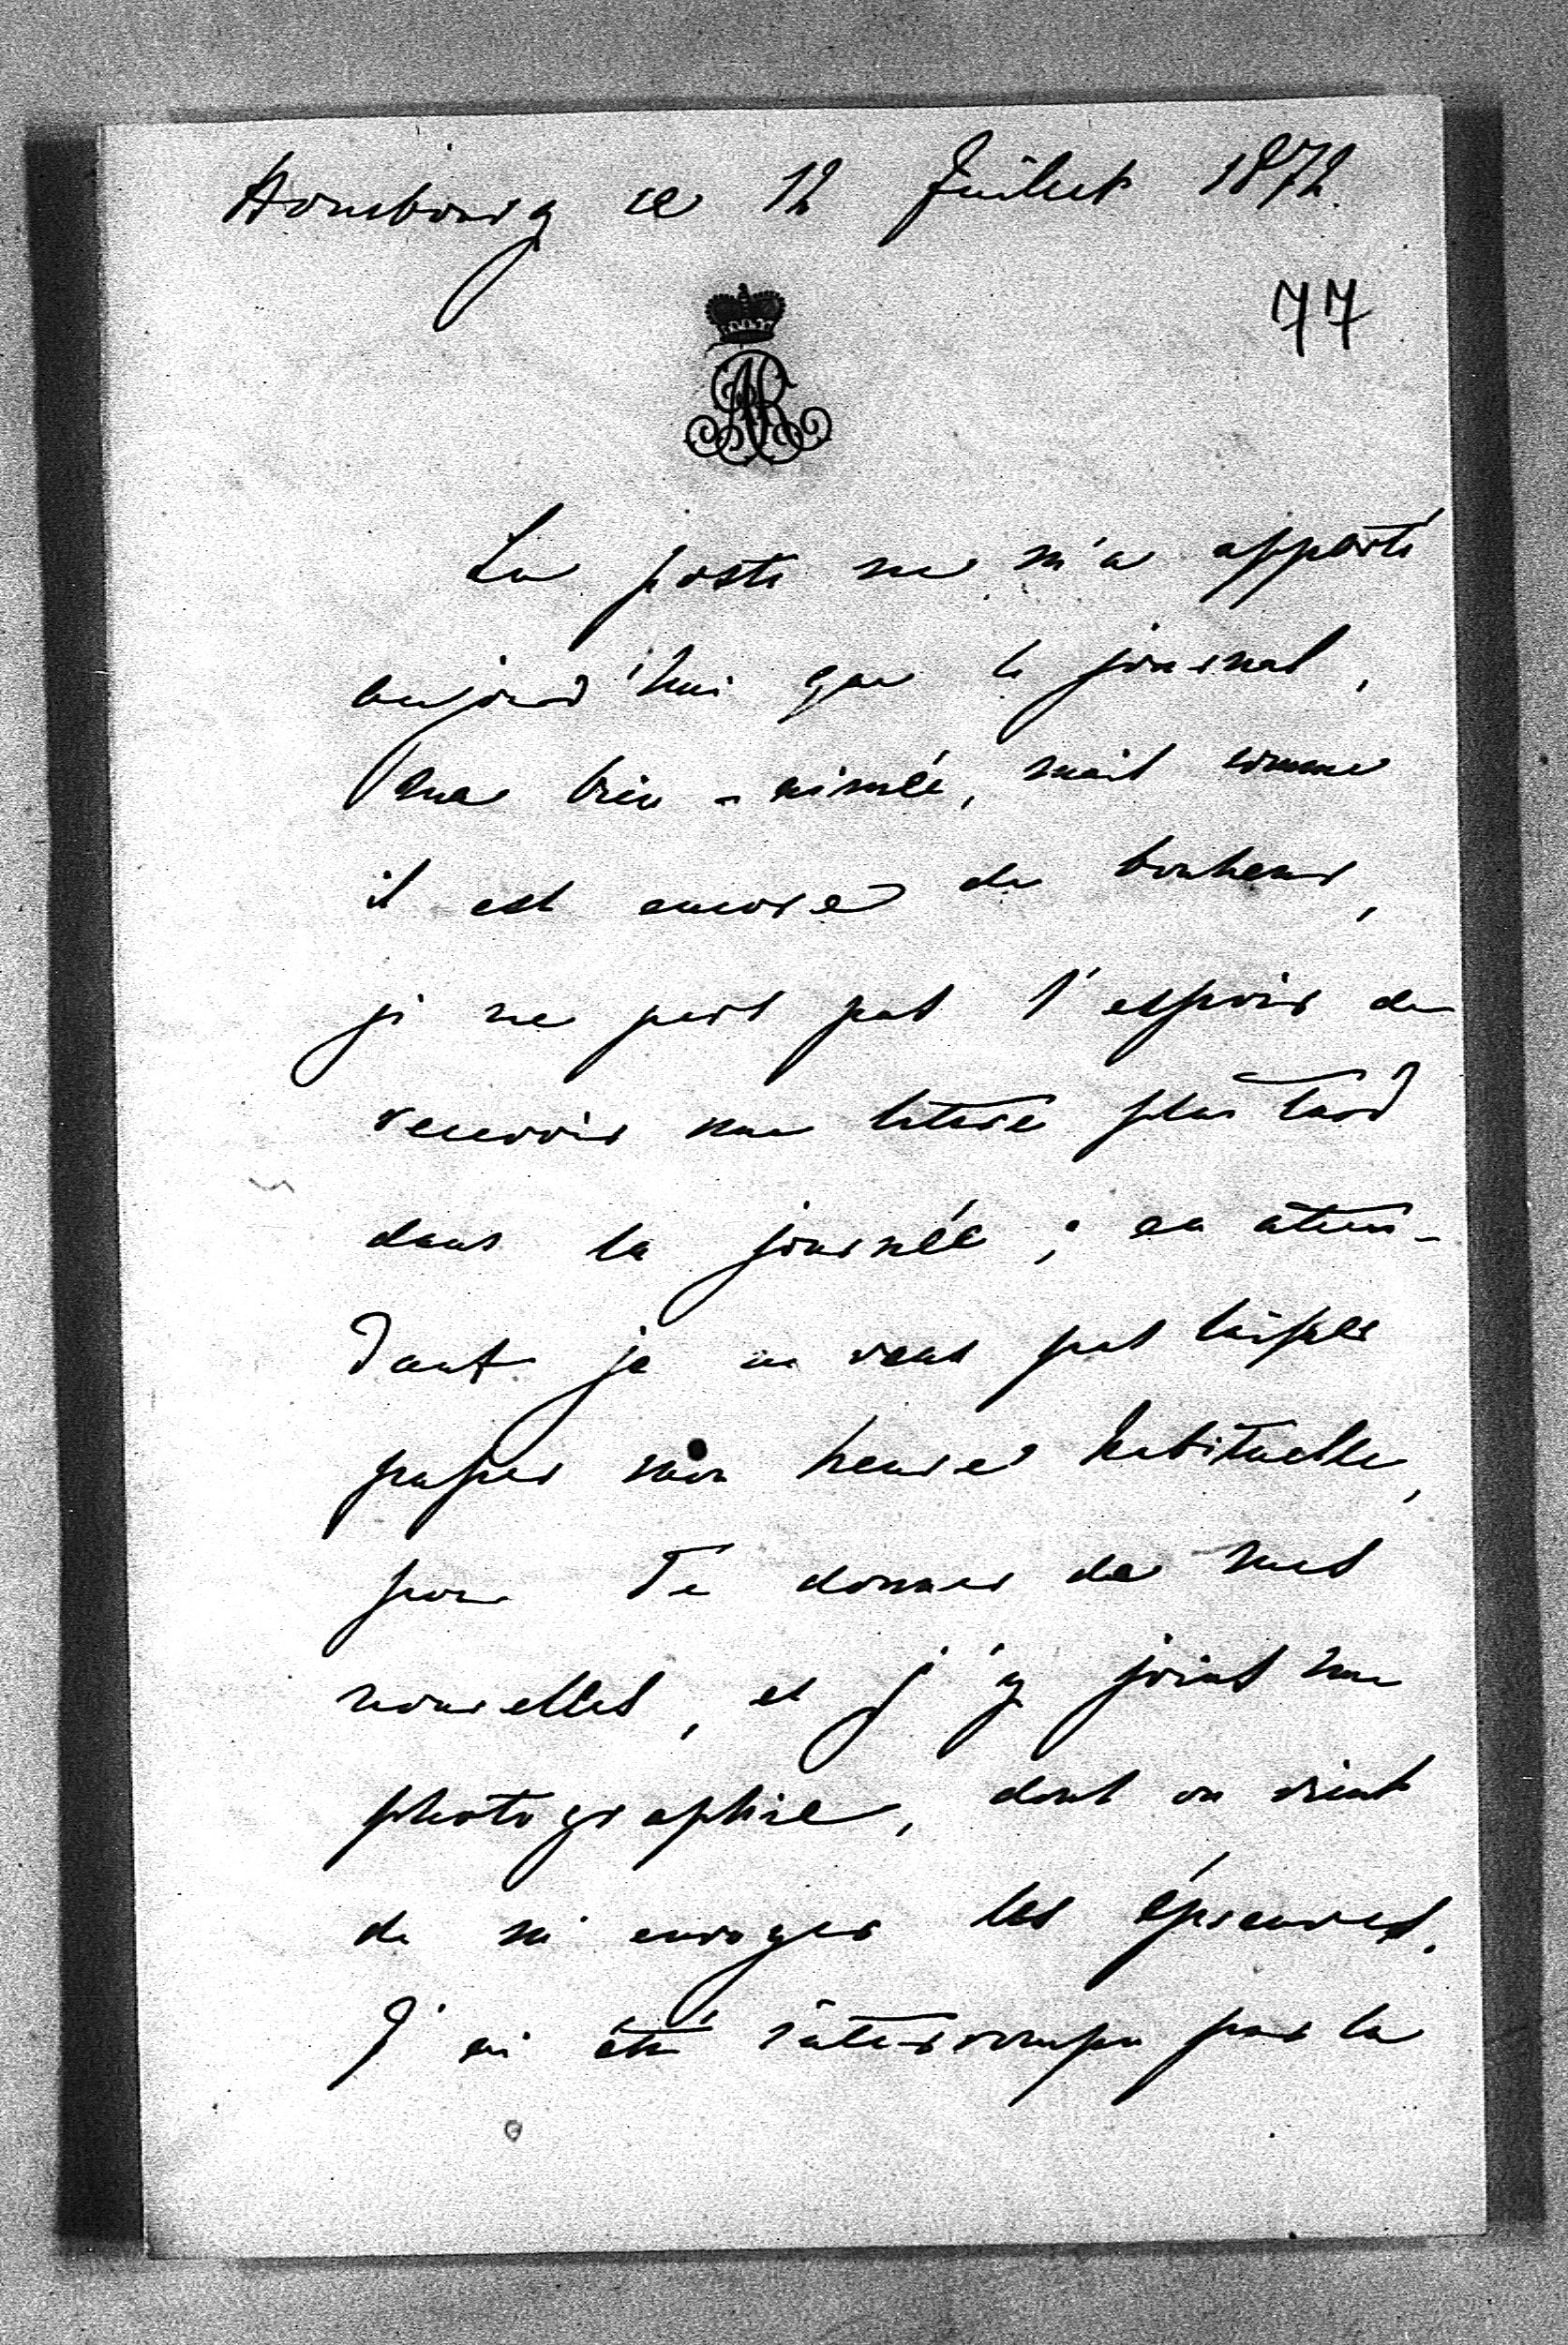 Hombourg ce 12 Juillet 1872.
77
AR
La poste ne m'a apporté
aujourd'hui que le journal,
ma bien-aimée, mais comme
il est encore de bonheur,
je ne pers pas l'espoir de
recevoir une lettre plus tard
dans la journée ; en atten-
dant je ne veux pas laisser
passer mon heure habituelle,
pour Te donner de mes
nouvelles, et j'y joins une
photographie, dont on vient
de m'envoyer les épreuves.
J'ai été interrompu par la